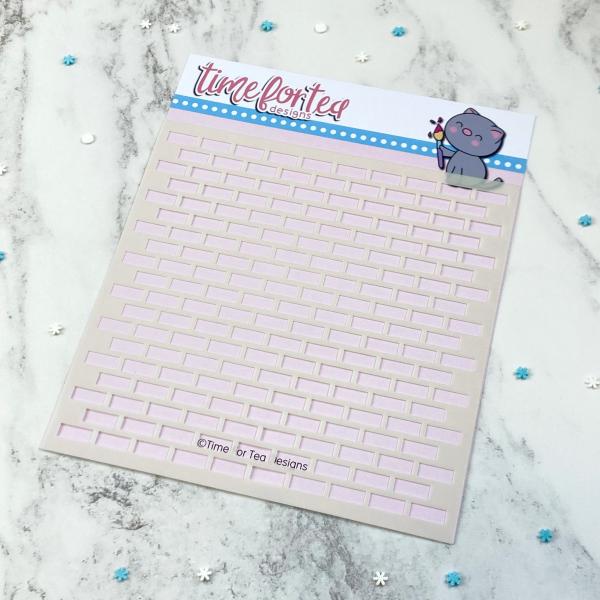 time for tea
designs
©Time or Tea esigns